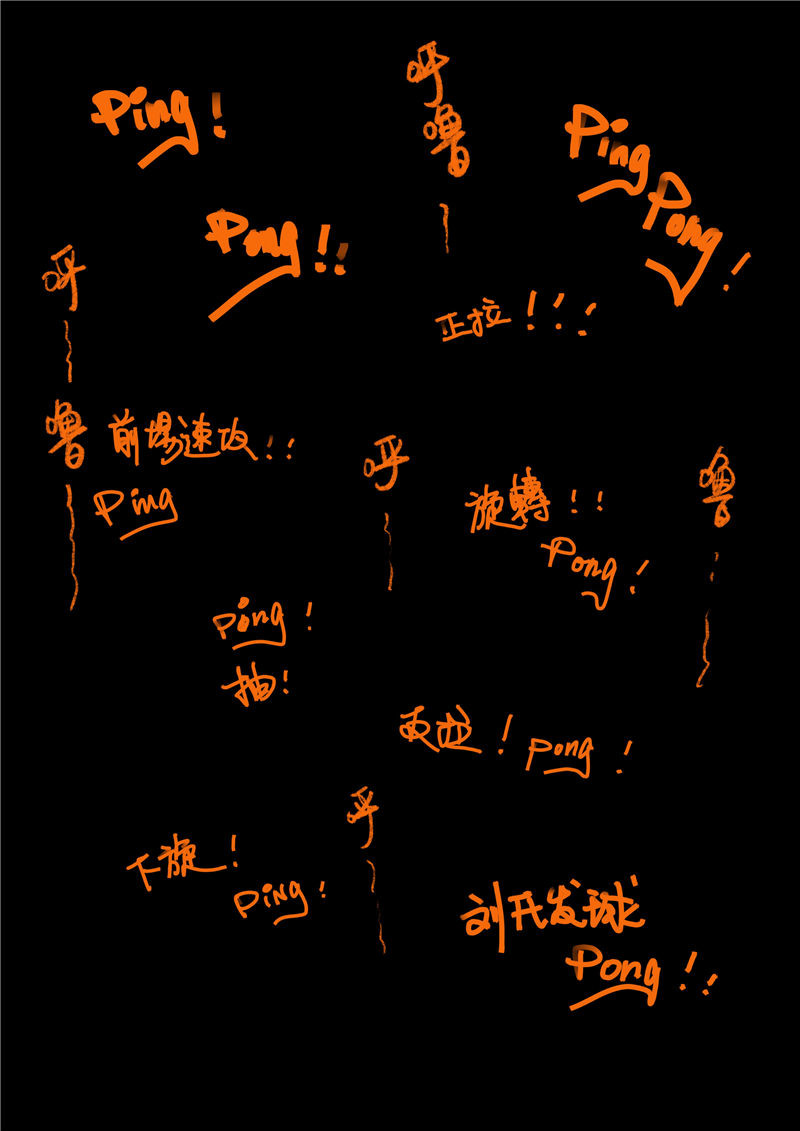 Ping!
呼噜
Ping
Pong!
Pong!!
呼
正拉!!!
噜
前場速攻!!
呼
噜
旋轉!!
Ping
Pong!
Ping!
抽!
反拉!
Pong!
呼
下旋!
Ping!
刘氏发球
Pong!!